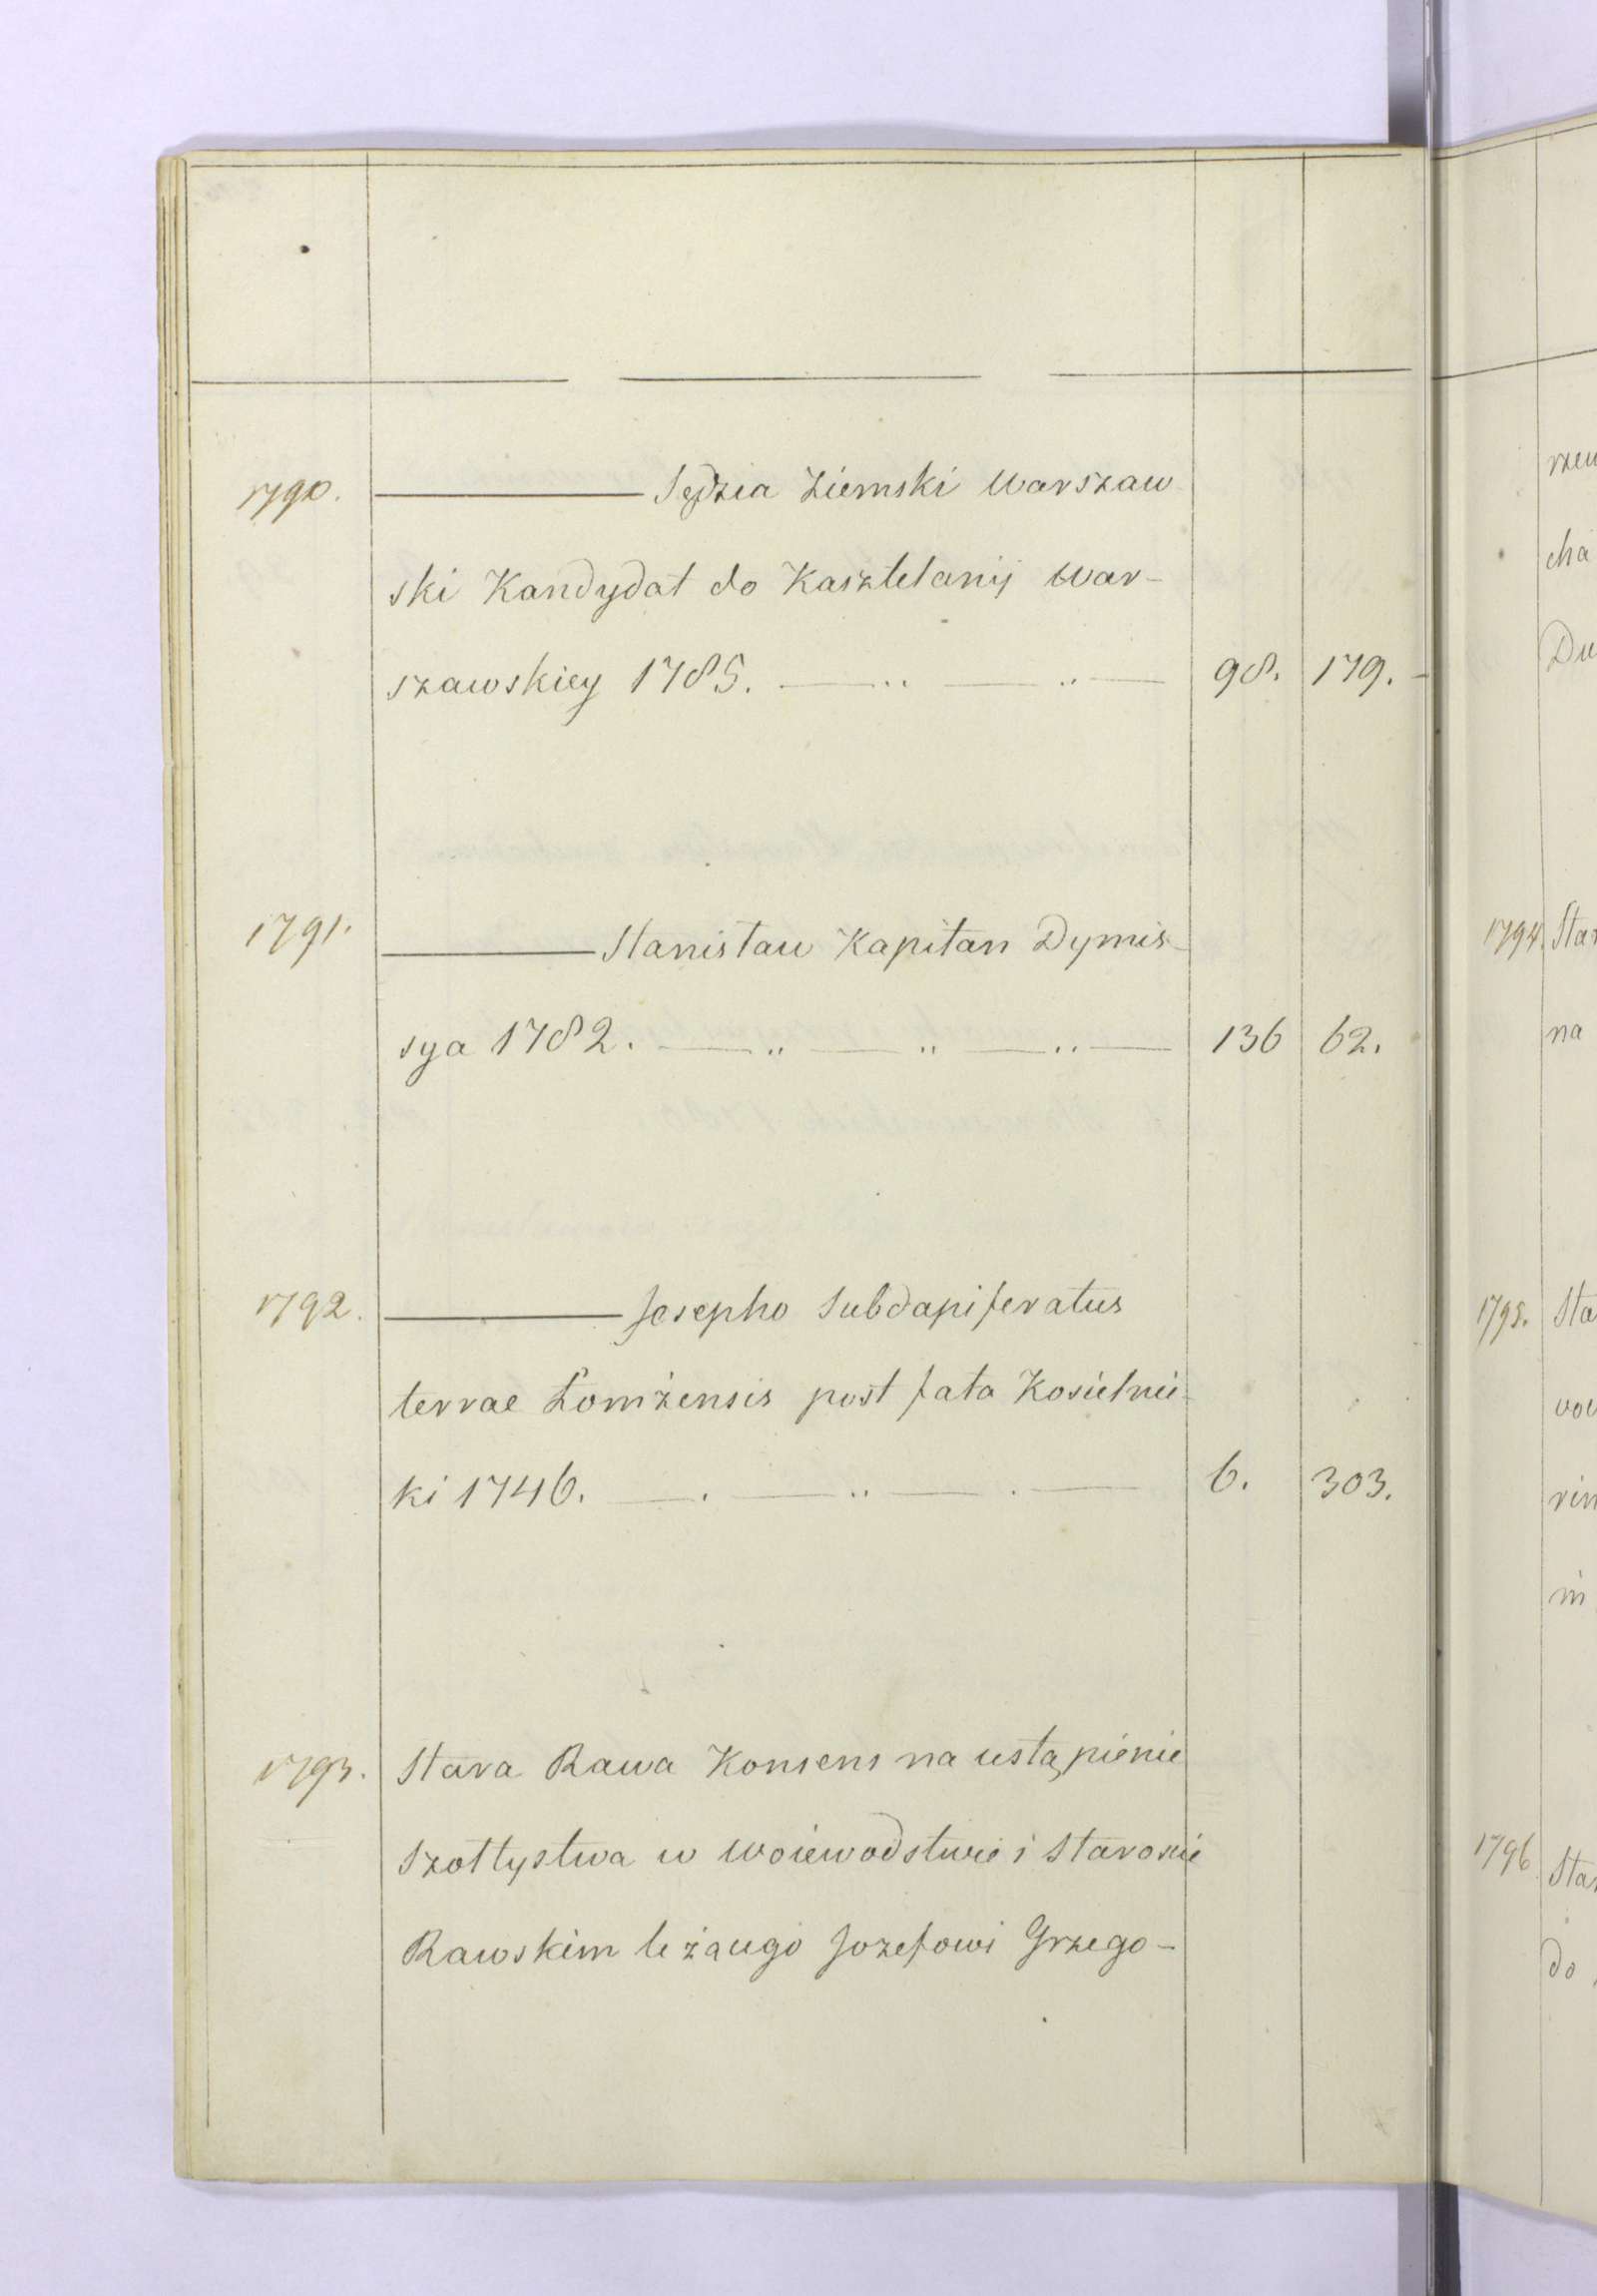 1790. ——— Sędzia Ziemski Warszaw
ski Kandydat do Kasztelanij War-
szawskiey 1785. — „ — „ — 98. 179. -
1791. ——— Stanisław Kapitan Dymis-
sya 1782. — „ — „ — „ — 136 62.
1792. ——— Josepho Subdapiferatus
terrae Łomżensis post fata Kosielnic-
ki 1746. — . — „ — . — 6. 303.
1793. Stara Rawa Konsens na ustąpienie
Szołtystwa w Woiewodstwie i Starostwie
Rawskim leżącego Jozefowi Grzego-
rzew
cha
Du
1794. Star
na
1795. Sta
voi
rin
in
1796 Star
do